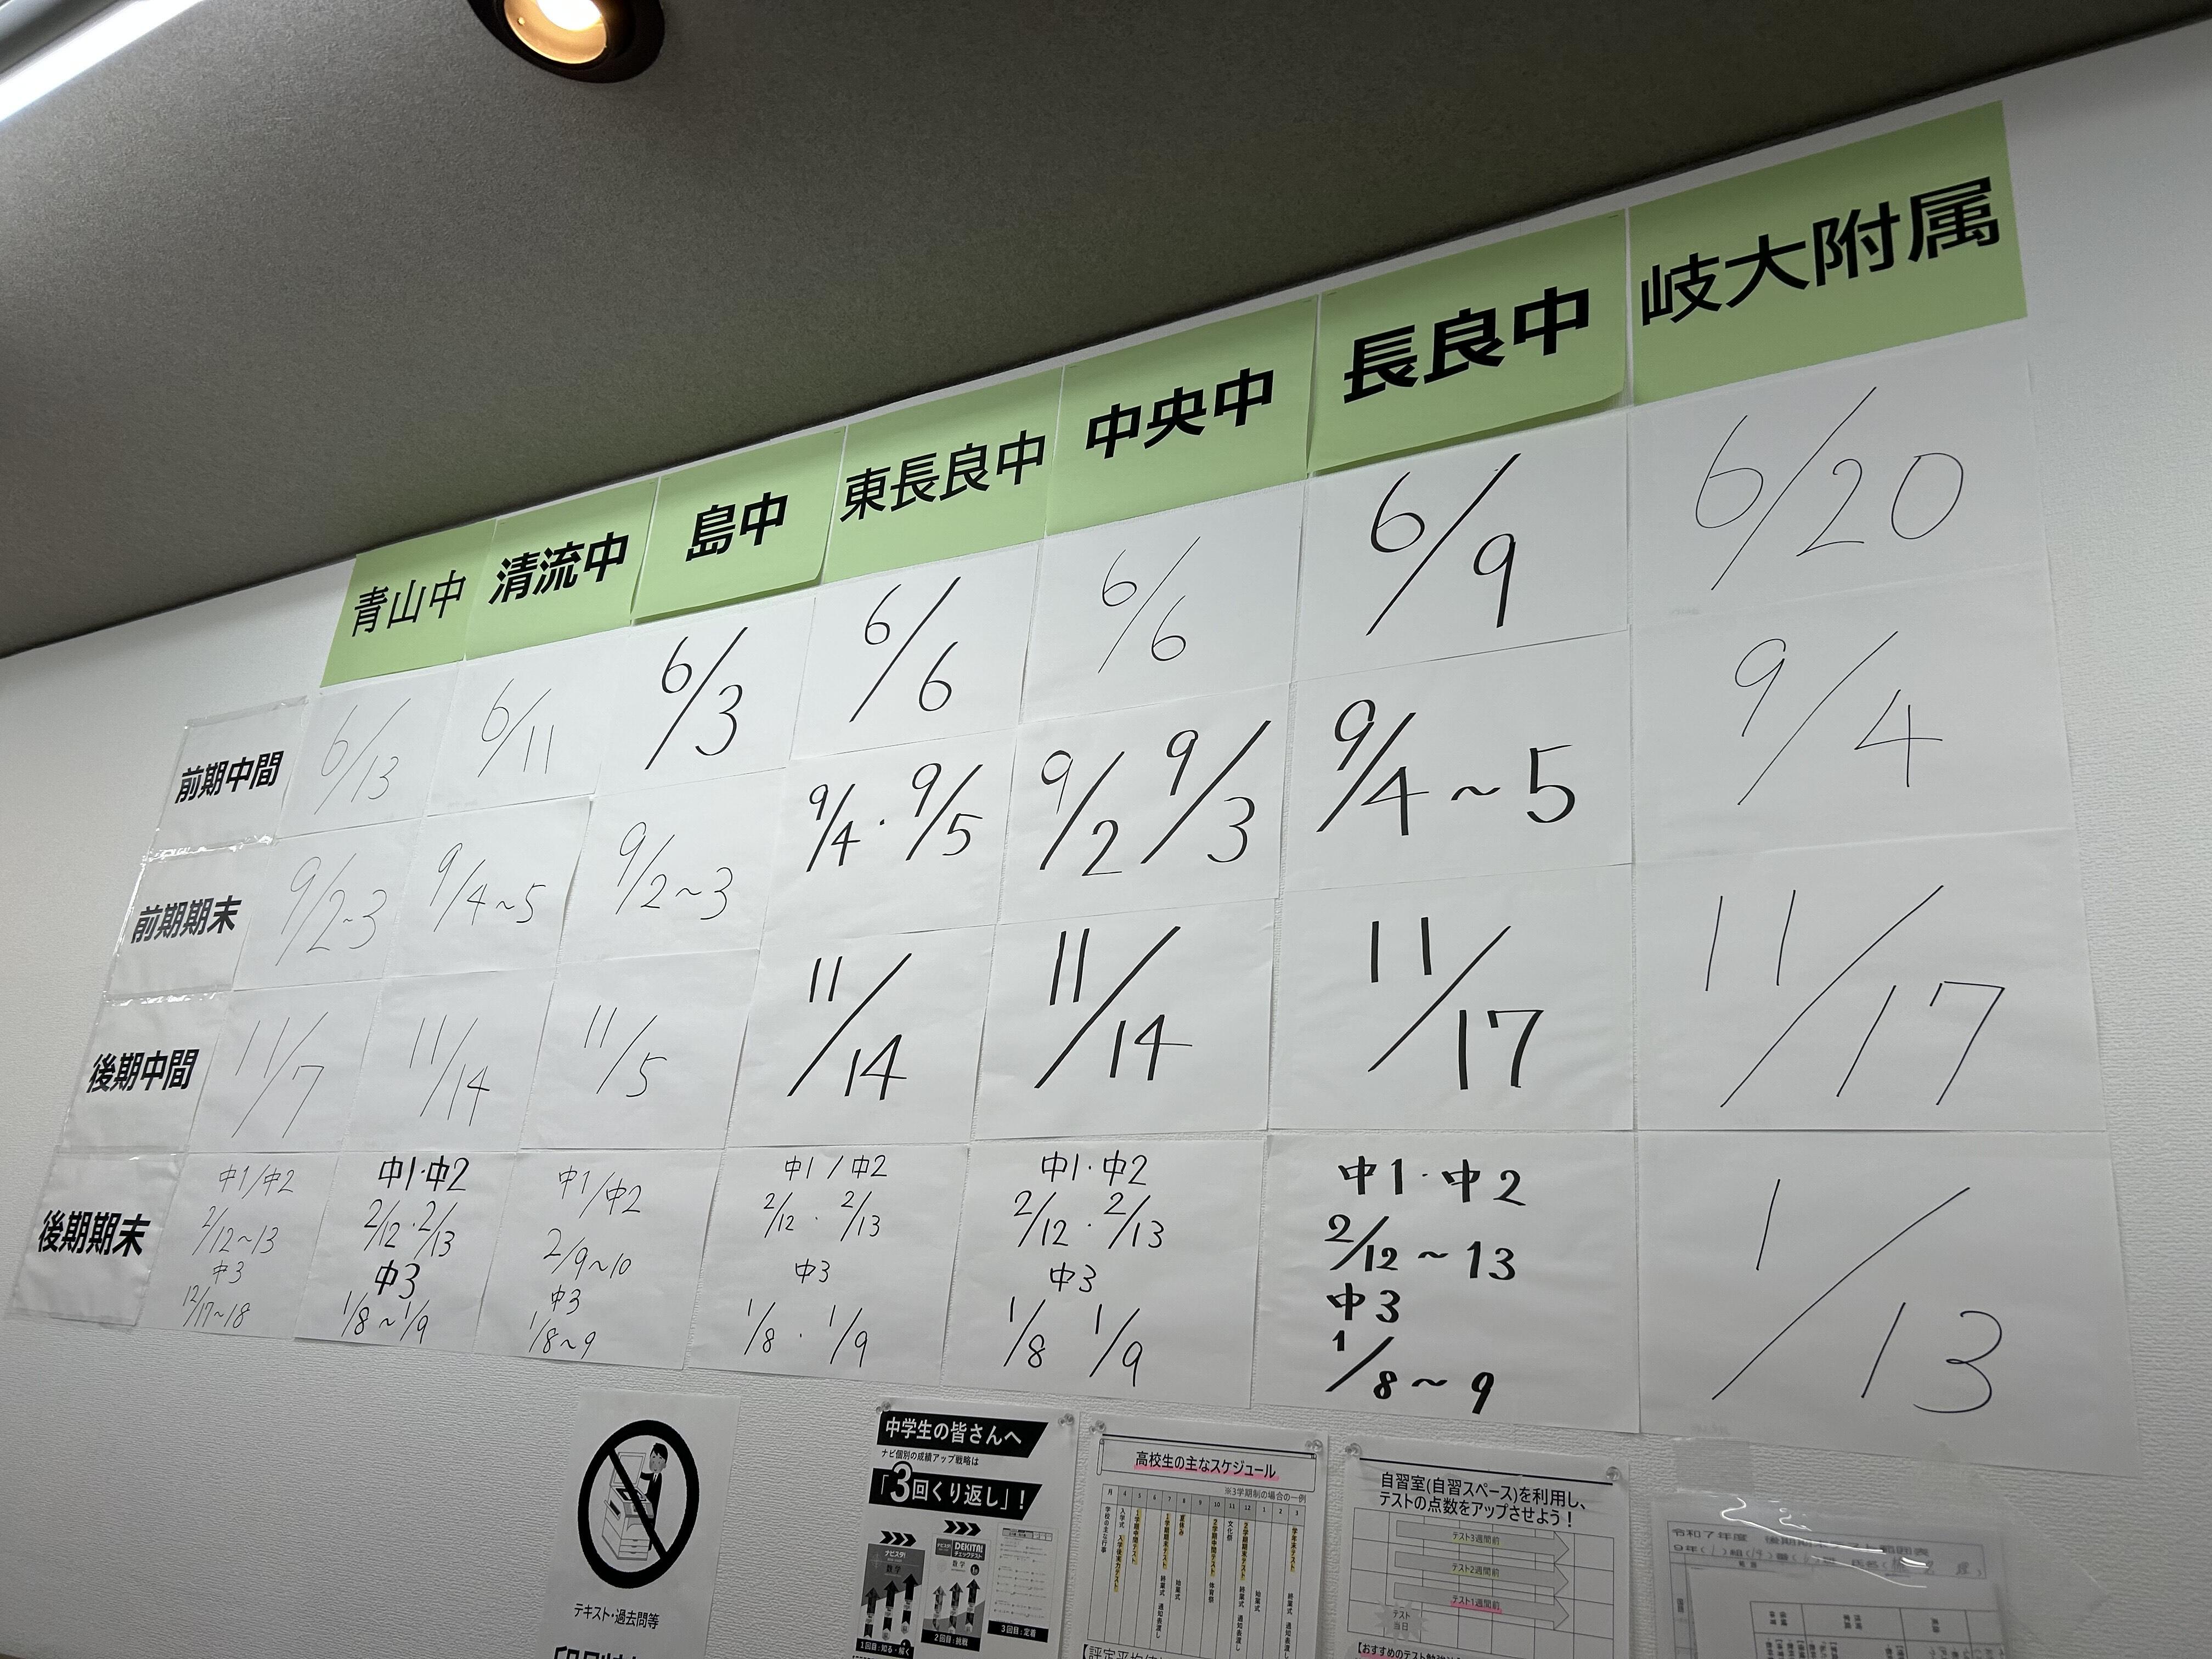 青山中 清流中 島中 東長良中 中央中 長良中 岐大附属
前期中間 6/13 6/11 6/3 6/6 6/6 6/9 6/20
前期期末 9/2~3 9/4~5 9/2~3 9/4・9/5 9/2 9/3 9/4~5 9/4
後期中間 11/7 11/14 11/5 11/14 11/14 11/17 11/17
後期期末
中1/中2
2/12~13
中3
12/17~18
中1・中2
2/12・2/13
中3
1/8~1/9
中1/中2
2/9~10
中3
1/8~9
中1/中2
2/12・2/13
中3
1/8・1/9
中1・中2
2/12・2/13
中3
1/8 1/9
中1・中2
2/12~13
中3
1/8~9
1/13
テキスト・過去問等
中学生の皆さんへ
ナビ個別の成績アップ戦略は
「3回くり返し」!
ナビスタ!
数学
DEKITA!
チェックテスト
数学
1回目:知る・解く
2回目:挑戦
3回目:定着
高校生の主なスケジュール
※3学期制の場合の一例
月 4 5 6 7 8 9 10 11 12 1 2 3
学校の主な行事
入学式
入学後実力テスト
1学期中間テスト
1学期期末テスト
終業式
通知表渡し
夏休み
始業式
2学期中間テスト
体育祭
文化祭
2学期期末テスト
終業式
通知表渡し
始業式
学年末テスト
終業式
通知表渡し
自習室(自習スペース)を利用し、
テストの点数をアップさせよう!
テスト3週間前
テスト2週間前
テスト1週間前
テスト
当日
令和7年度